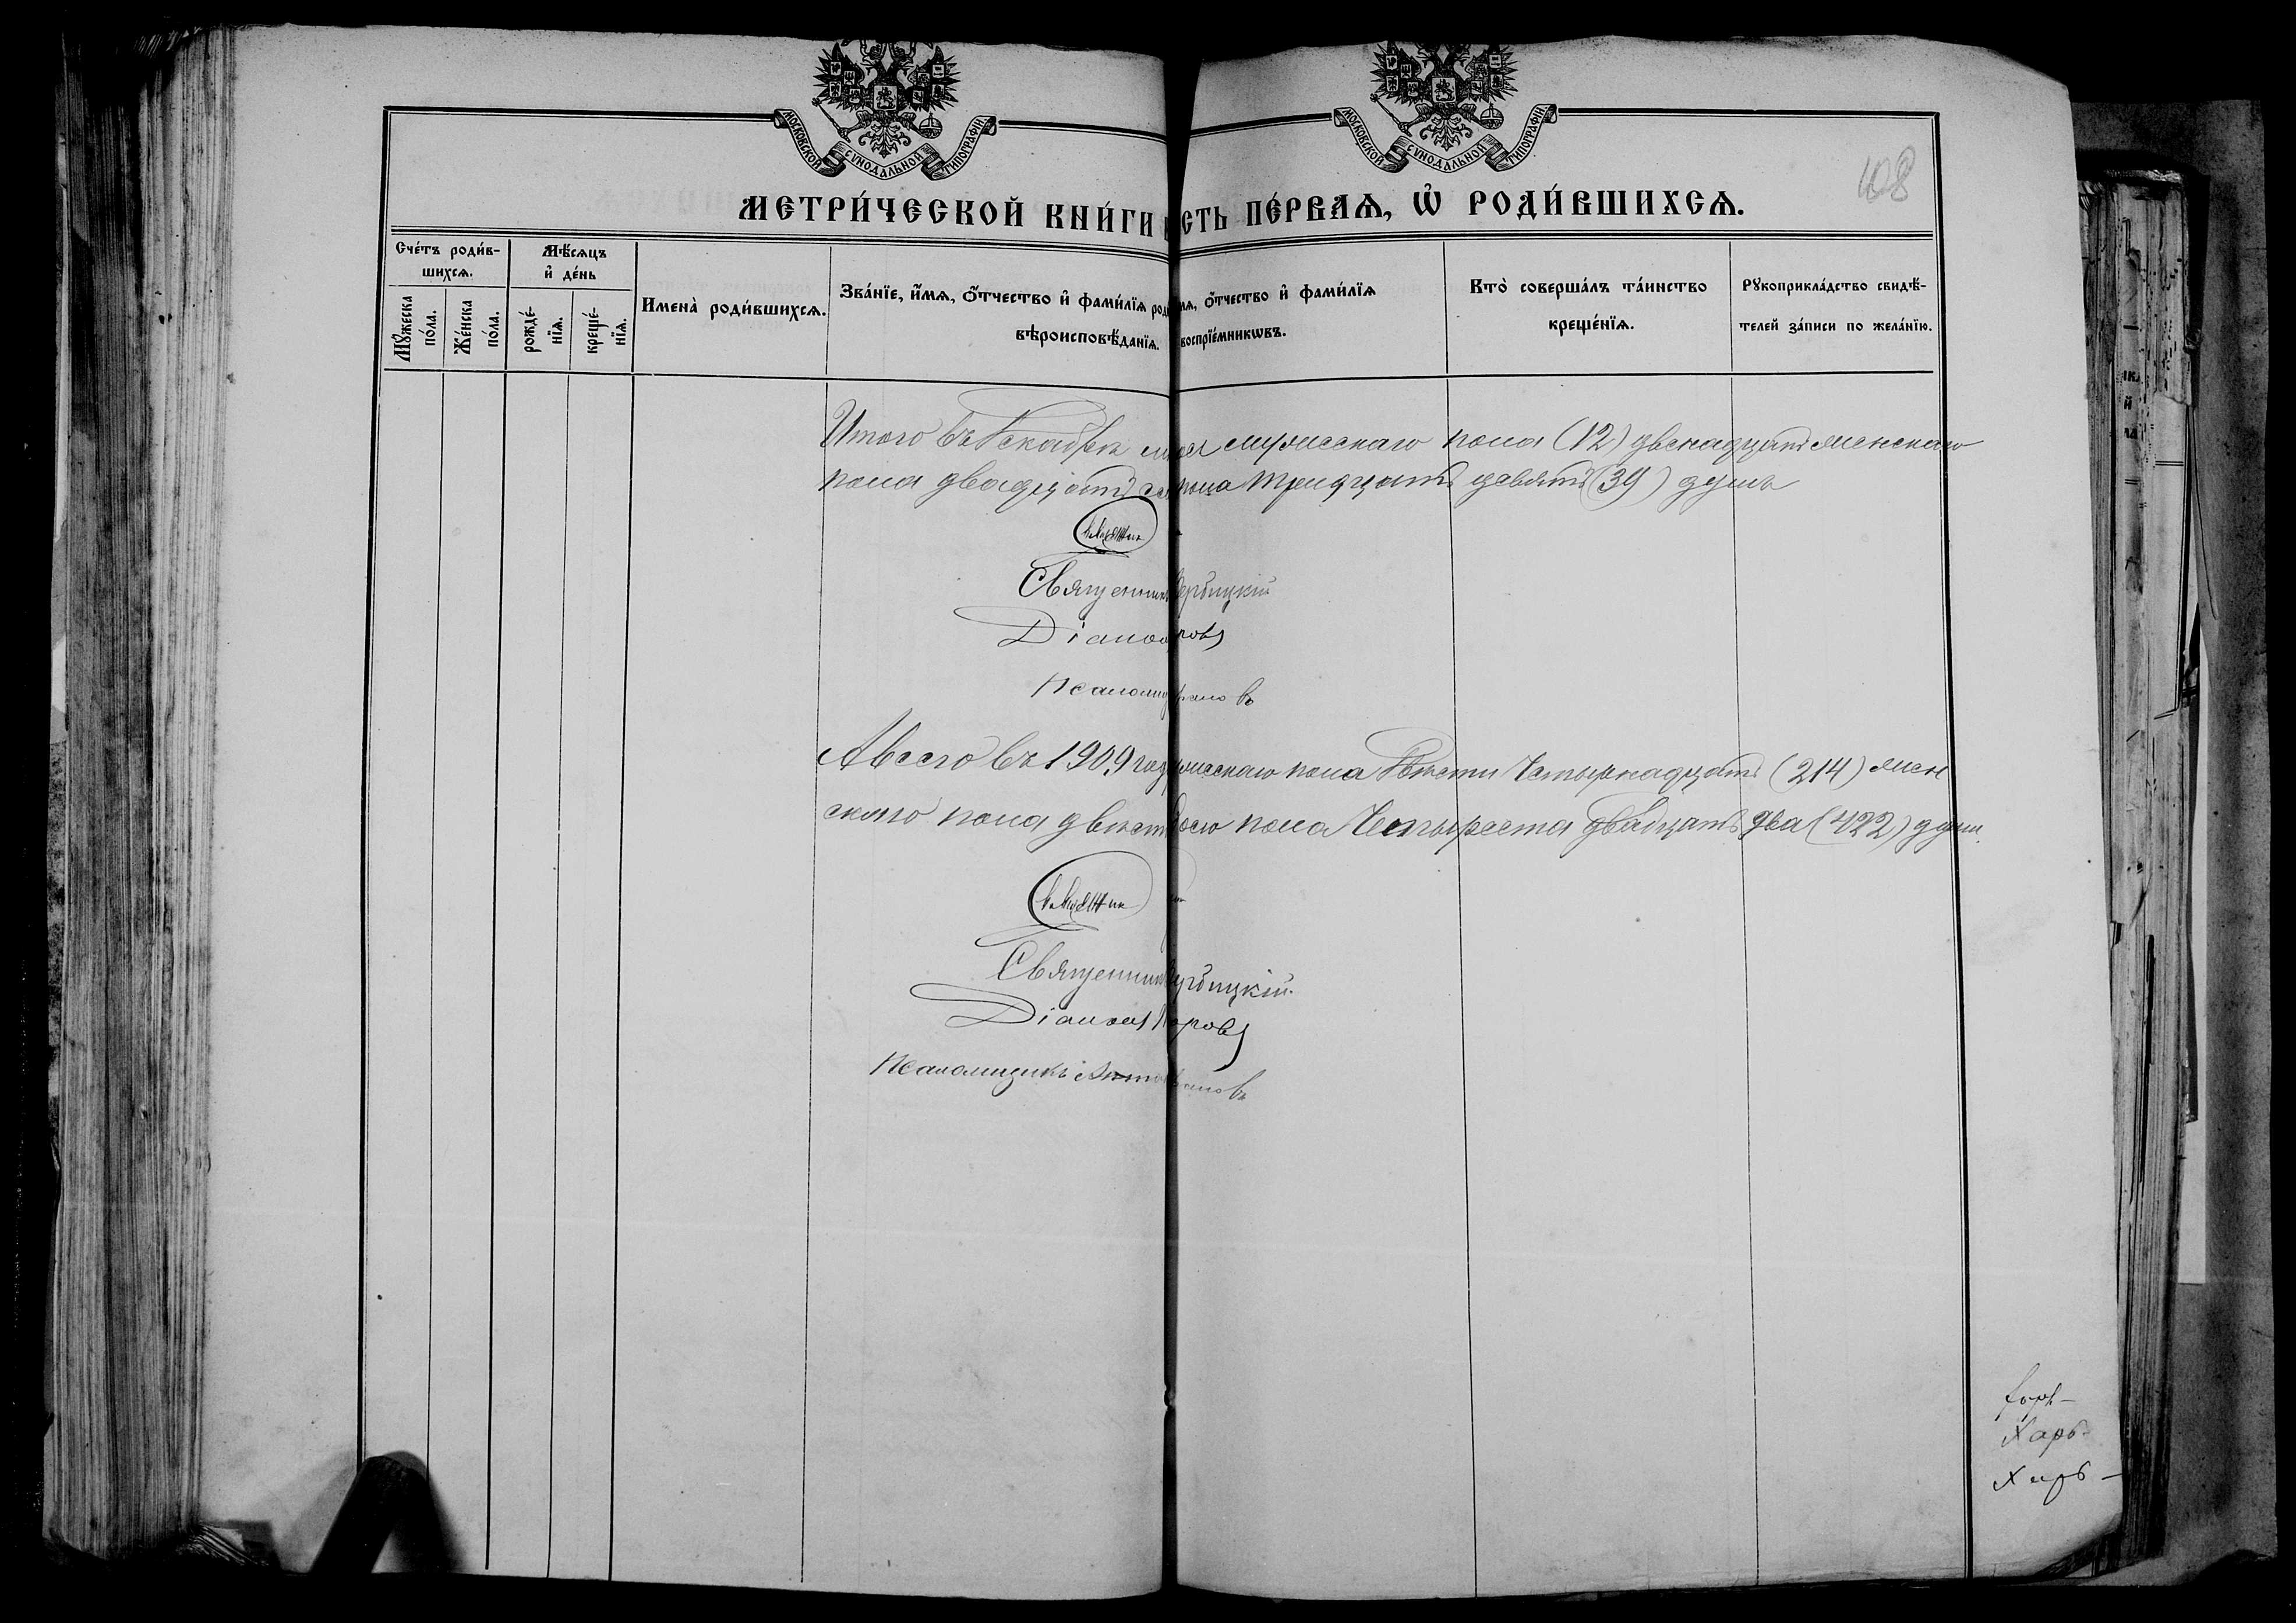 МОСКОВСКОЙ СѴНОДАЛЬНОЙ ТИПОГРАФІИ.
МОСКОВСКОЙ СѴНОДАЛЬНОЙ ТИПОГРАФІИ.
108
МЕТРИ́ЧЕСКОЙ КНИ́ГИ СТЬ ПЕ́РВАѦ, Ѡ҆ РОДИ́ВШИХСѦ.
Сче́тъ роди́в-
шихсѧ.
Мꙋ́жеска по́ла.
Же́нска по́ла.
Мѣ́сѧцъ
и҆ де́нь
рожде́-нїѧ.
креще́-нїѧ.
Имена̀ роди́вшихсѧ.
Зва́нїе, и҆́мѧ, ѻ҆́тчество и҆ фами́лїѧ род
вѣроисповѣ́данїѧ.
мѧ, ѻ҆́тчество и҆ фами́лїѧ
воспрїе́мникѡвъ.
Кто̀ соверша́лъ та́инство
креще́нїѧ.
Рꙋкоприкла́дство свидѣ́-
телей за́писи по жела́нїю.
Итого въ Декабрѣ мужескаго пола (12) двенадцать женскаго
пола двадцать пола тридцать девять (39) душъ
Священникъ ербицкій
Діакон ровъ
Псаломщ ановъ
А всего въ 1909 год ужескаго пола Двѣсти Четырнадцать (214) жен
скаго пола двѣст обоего пола Четыреста двадцать два (422) душ.
Священник ербицкій.
Діаконъ ровъ
Псаломщикъ ановъ
Харь-